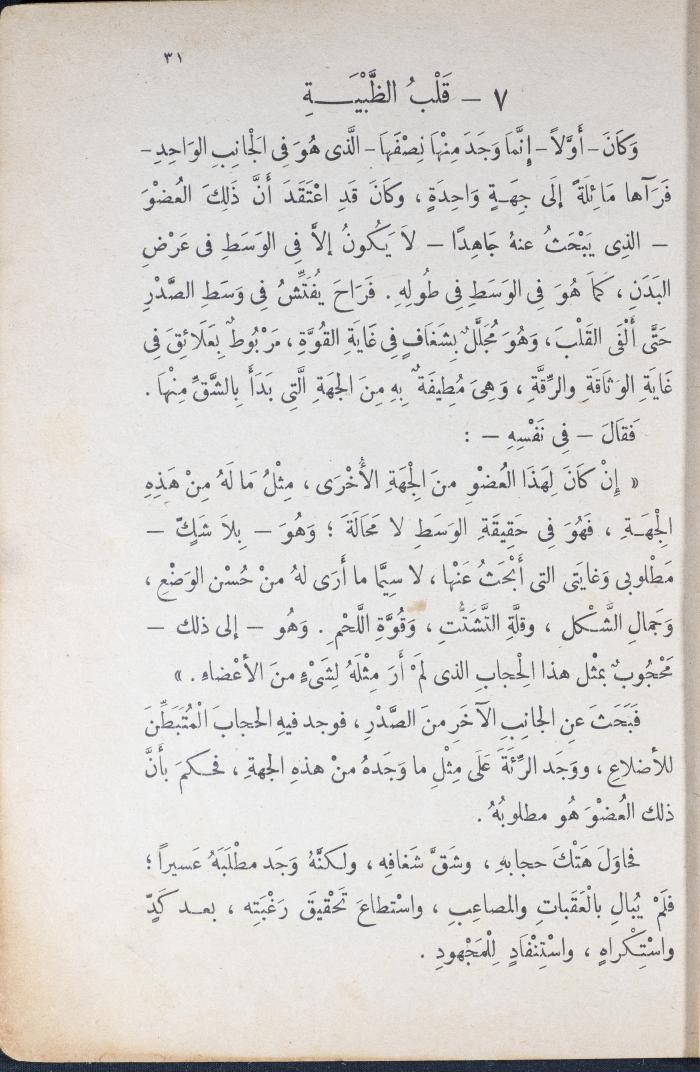 ٣١
٧ – قَلْبُ الظَّبْيَــةِ
وَكَانَ – أَوَّلاً – إِنَّمَا وَجَدَ مِنْهَا نِصْفَهَا – الَّذى هُوَ فِى الْجَانِبِ الوَاحِدِ –
فَرَآها مَائِلَةً إِلَى جِهَـةٍ وَاحِدَةٍ ، وَكَانَ قَدِ اعْتَقَدَ أَنَّ ذَلِكَ العُضْوَ
– الذِى يَبْحَثُ عنهُ جَاهِدًا – لاَ يَكُونُ إِلاَّ فِى الوَسَطِ فى عَرْضِ
البَدَنِ ، كَمَا هُوَ فِى الوَسَطِ فِى طُولِهِ . فَرَاحَ يُفَتِّشُ فِى وَسَطِ الصَّدْرِ
حَتَّى أَلْفَى القَلْبَ ، وَهُوَ مُجَلَّلٌ بِشَغَافٍ فِى غَايَةِ القُوَّةِ ، مَرْبُوطٌ بِعَلَائِقَ فِى
غَايَةِ الوَثَاقَةِ والرِّقَّةِ ، وَهِىَ مُطِيفَةٌ بِهِ مِنَ الجِهَةِ الَّتِى بَدَأَ بِالشَّقِّ مِنْهَا .
فَقَالَ – فِى نَفْسِهِ – :
« إِنْ كَانَ لِهَذَا العُضْوِ منَ الْجِهَةِ الأُخْرَى ، مِثْلُ مَا لَهُ مِنْ هَذِهِ
الْجِهَـةِ ، فَهُوَ فِى حَقِيقَةِ الوَسَطِ لا مَحَالَةَ ؛ وَهُوَ – بِلاَ شَكٍّ –
مَطْلُوبِى وَغايَتِى التى أَبْحَثُ عَنْهَا ، لا سِيَّما ما أَرَى لهُ منْ حُسْنِ الوَضْعِ ،
وَجَمالِ الشَّـكْلِ ، وقلَّةِ التَّشَتُّتِ ، وَقُوَّةِ اللَّحْمِ . وَهُو – إلى ذلك –
مَحْجُوبٌ بمْثل هذا الْحِجابِ الذى لَمْ أَرَ مِثْلَهُ لِشَىْءٍ منَ الأعْضاءِ . »
فَبَحَثَ عنِ الجانبِ الآخَرِ منَ الصَّدْرِ ، فوجد فيهِ الحجابَ الْمُتَبَطِّنَ
للأضلاعِ ، ووَجَد الرِّئَةَ عَلَى مِثْلِ ما وَجَدهُ منْ هذهِ الجهةِ ، فحـكمَ بأنَّ
ذلك العُضْوَ هُو مطلوبُهُ .
فحاوَلَ هَتْكَ حجابهِ ، وشَقَّ شَغافِهِ ، ولكنَّهُ وَجَد مطْلَبَهُ عَسيراً ؛
فلَمْ يُبالِ بالْعَقَباتِ والمصاعِبِ ، واسْتطاعَ تَحْقيقَ رَغْبَتِه ، بعـد كَدٍّ
واسْتِـكْراهٍ ، واسْتِنْفادٍ لِلْمَجْهودِ .